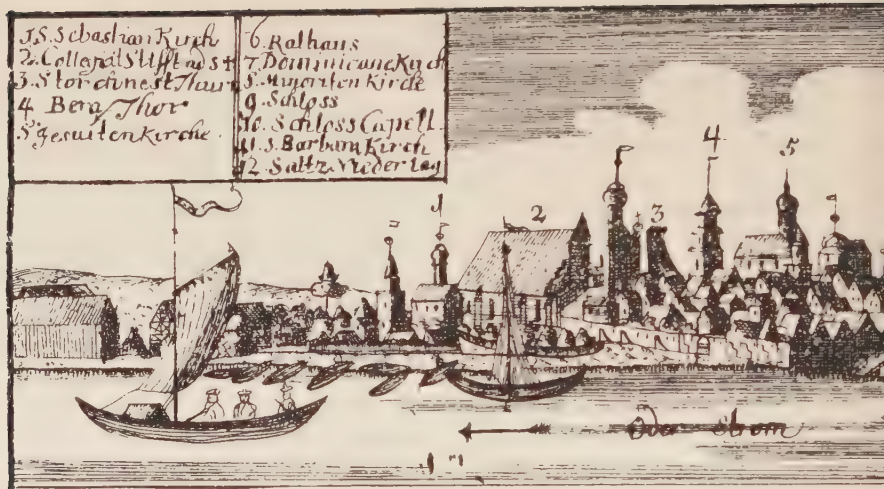 1. S. Sebastian Kirch
2. Collegiat Stifft ad S †
3. Storchnest Thurn
4 Berg Thor
5 Jesuiten Kirche.
6. Rathaus
7. Dominicane Kirch
8. Minoriten Kirche
9. Schloss
10. Schloss Capell.
11. S. Barbara Kirch
12. Saltz Niederlag
1
2
3
4
5
Oder Strom